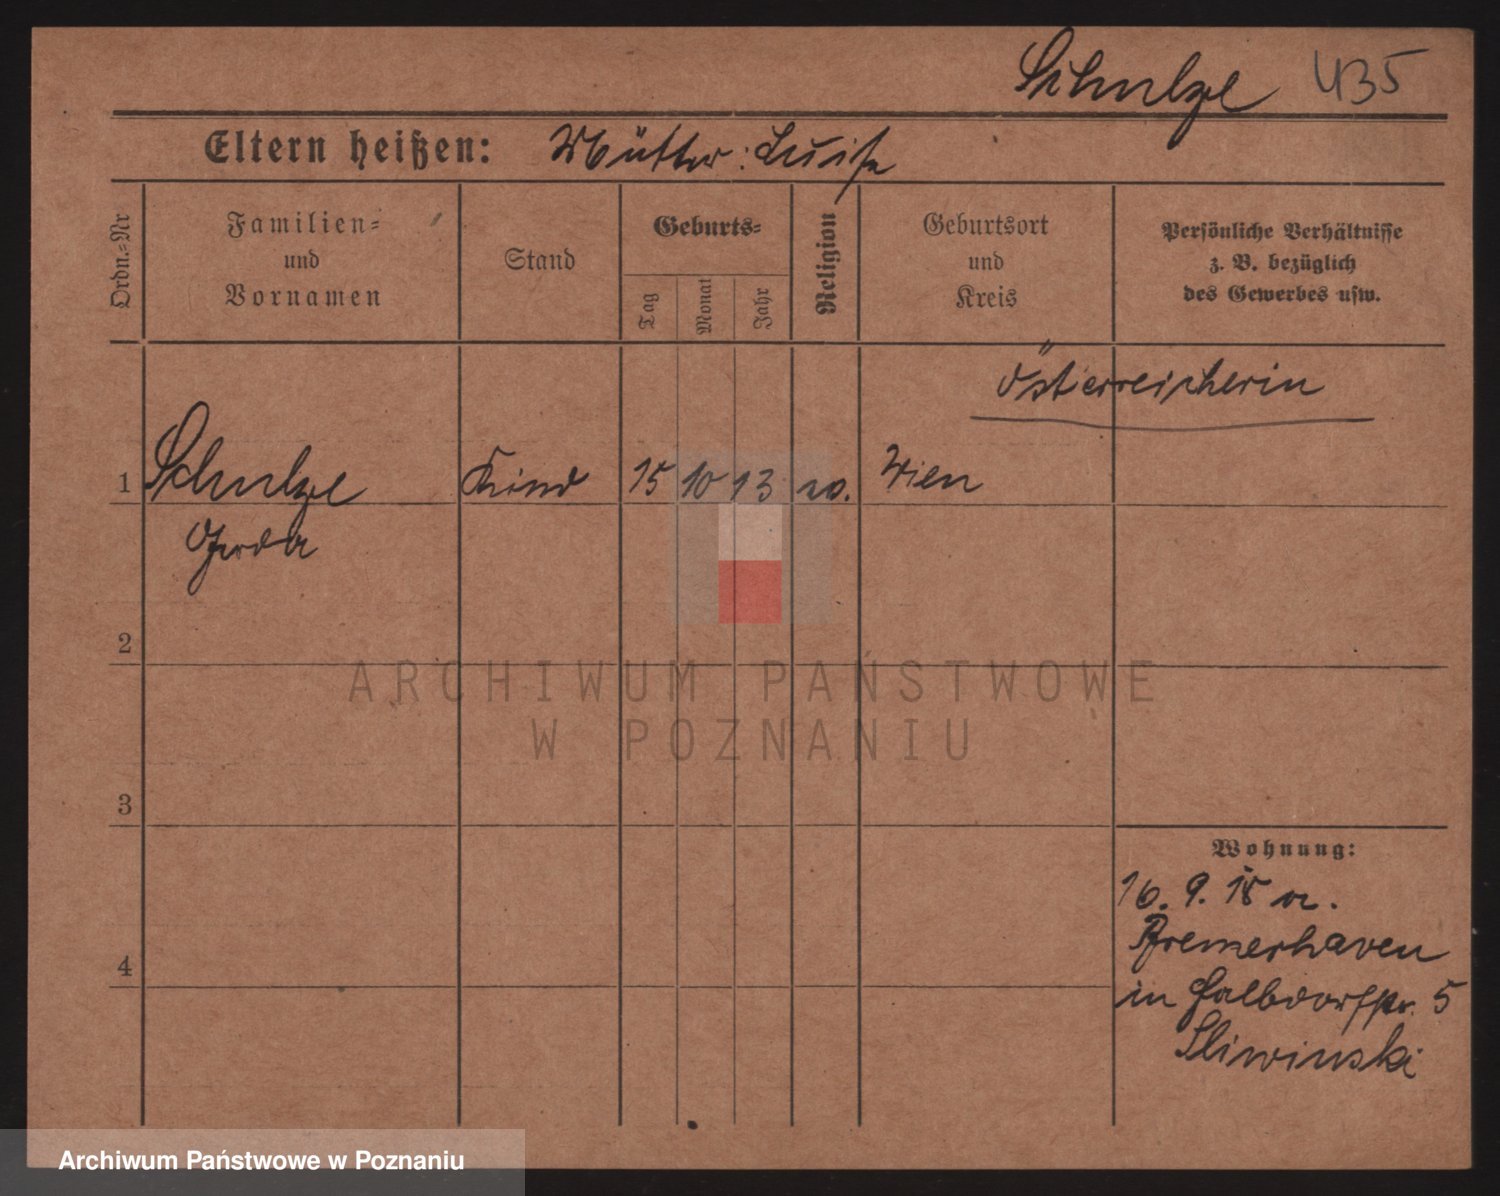 Schulze 435
Eltern heißen: Mutter: Luise
Ordn.=Nr
Familien=
und
Vornamen
Stand
Geburts=
Tag
Monat
Jahr
Religion
Geburtsort
und
Kreis
Persönliche Verhältnisse
z. B. bezüglich
des Gewerbes usw.
Österreicherin
1 Schulze Kind 15 10 13 Wien
Gerda
2
ARCHIWUM PAŃSTWOWE
W POZNANIU
3
Wohnung:
16. 9. 18 v.
Bremerhaven
4
in 5
Sliwinski
Archiwum Państwowe w Poznaniu